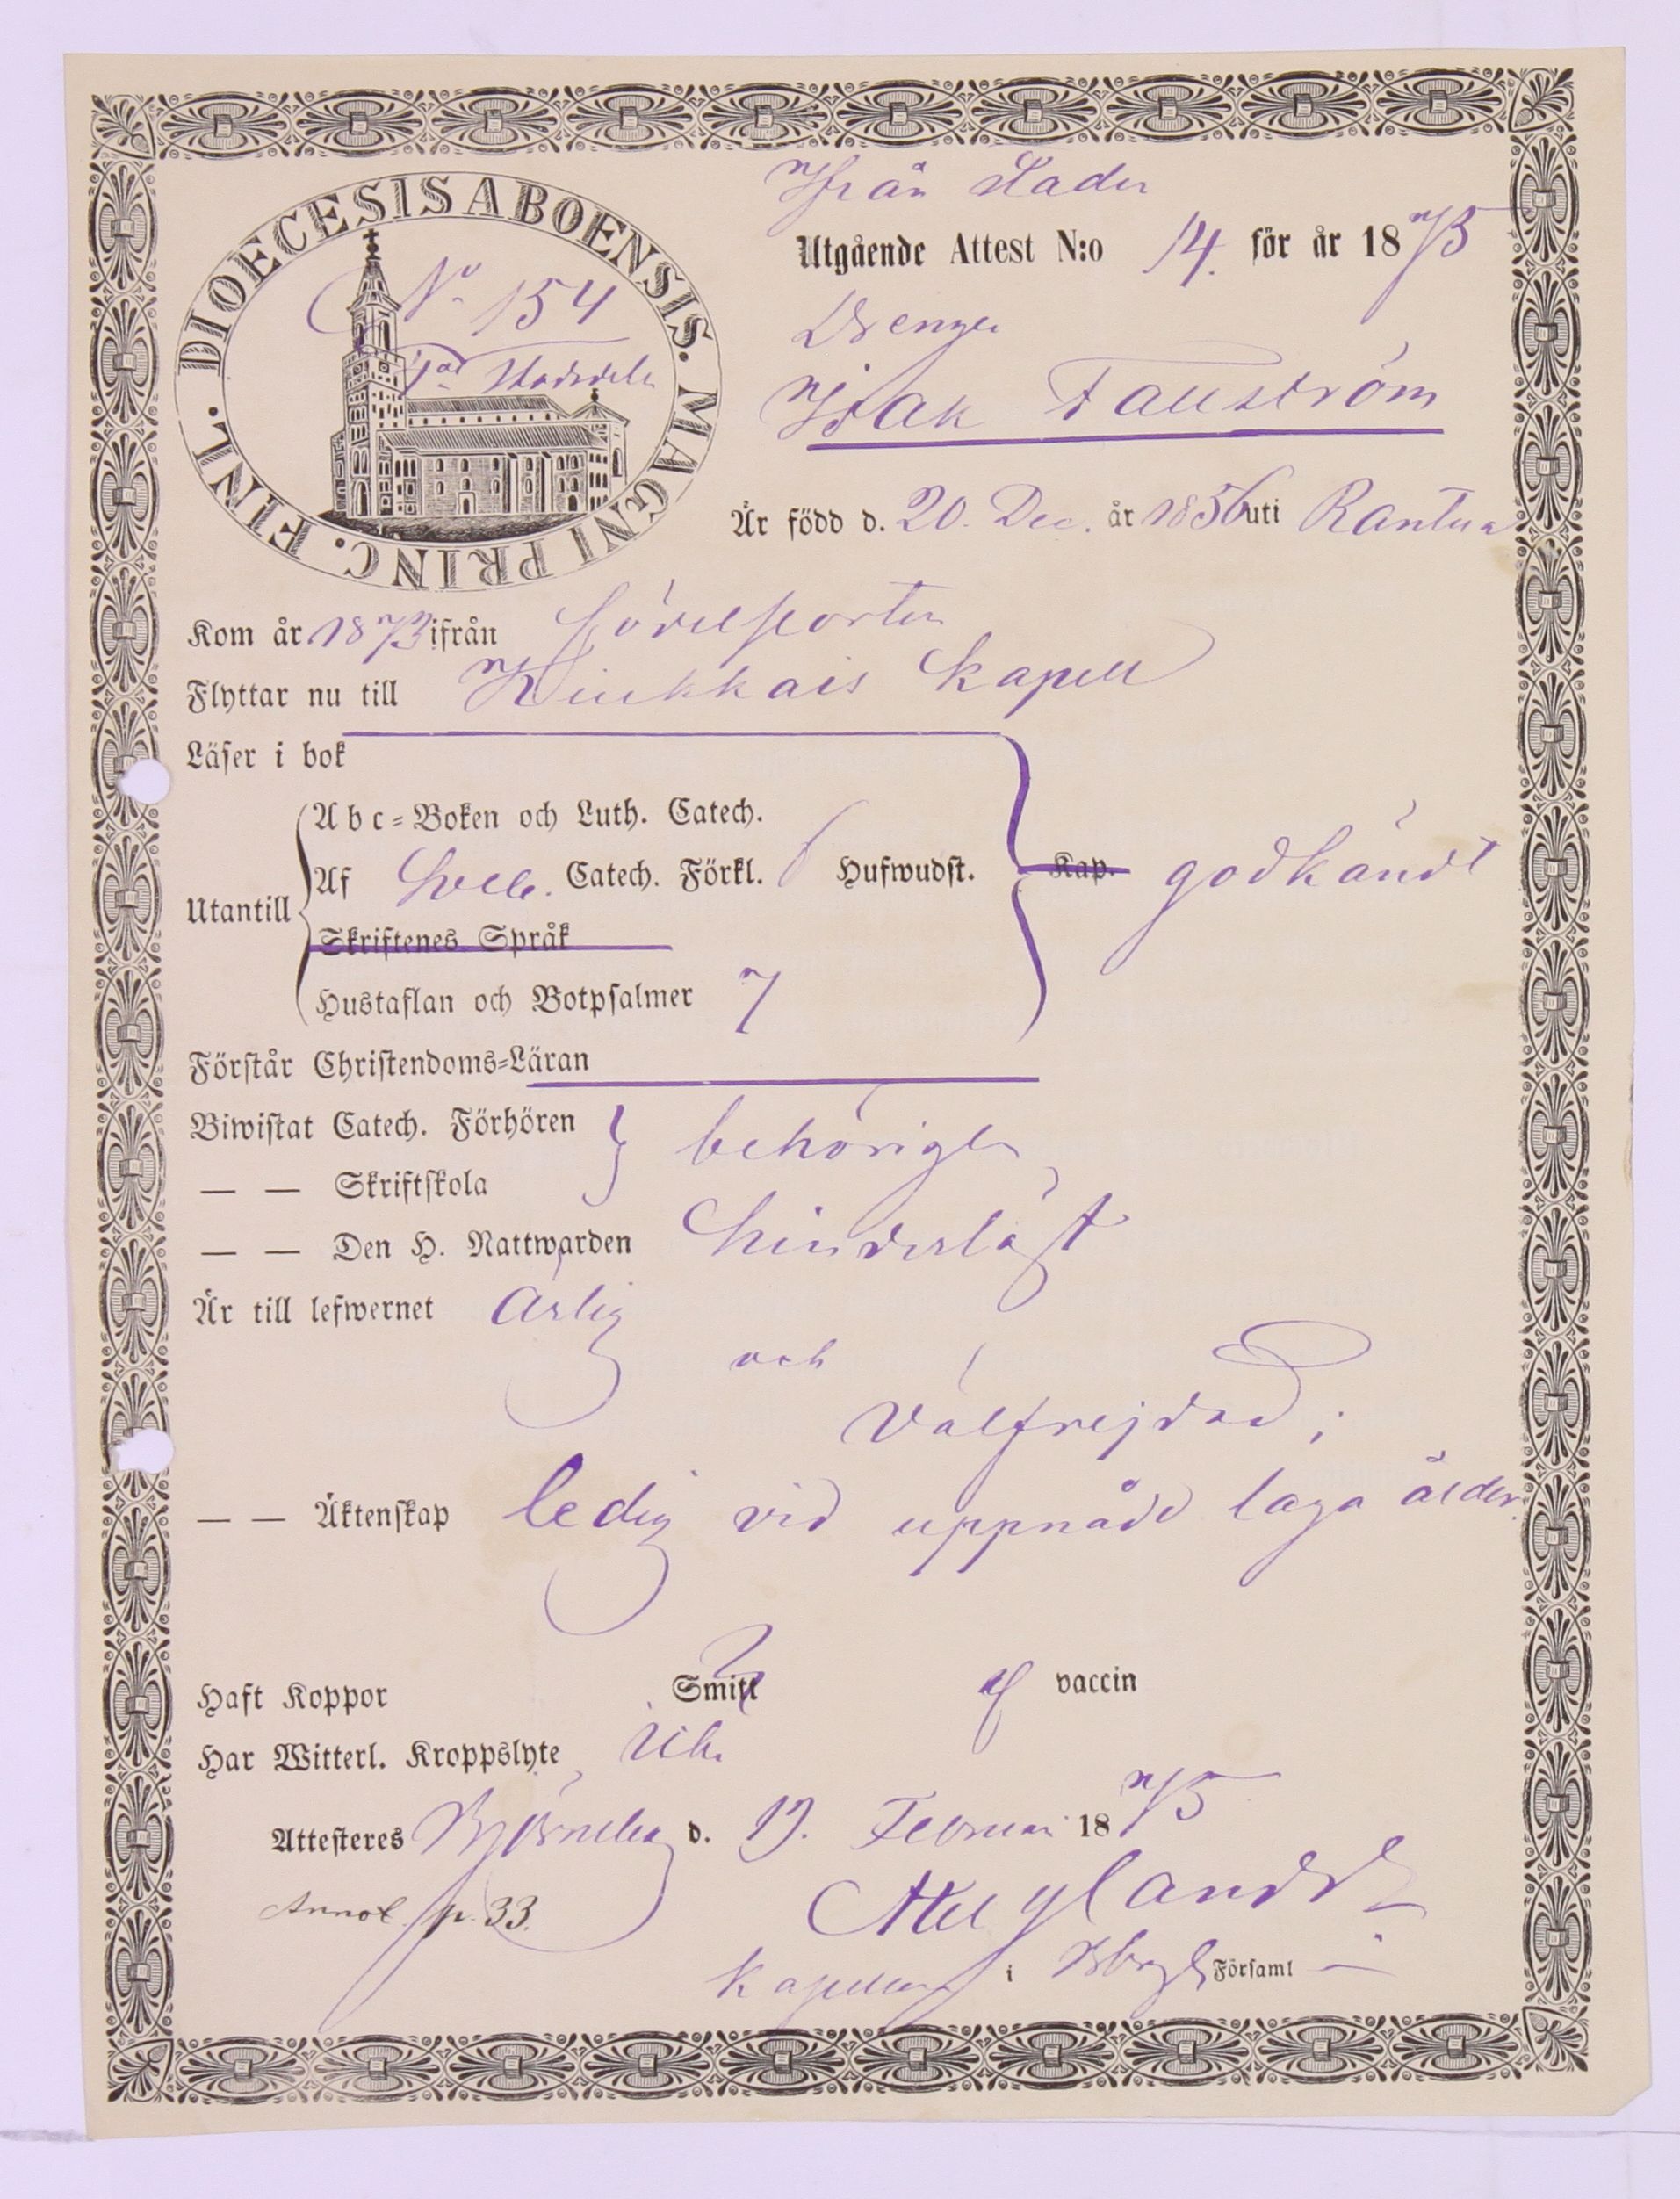 DIOECESIS ABOENSIS. MAGNI PRINC. FINL.
No 154
Ifrån Staden
Utgående Attest N:o 14. för år 1875
Drengen
Isak Fallström
Är född d. 20. Dec. år 1856 uti
Kom år 1873 ifrån
Flyttar nu till Kiukkais Kapell
Läser i bok
Utantill
Abc-Boken och Luth. Catech.
Af Sveb. Catech. Förkl. 6 Hufwudst. Kap. godkändt
Skriftenes Språk
Hustaflan och Botpsalmer 7
Förstår Christendoms-Läran
Biwistat Catech. Förhören behörigen
— — Skriftskola
— — Den H. Nattwarden hinderlöst
Är till lefwernet ärlig
och
välfrejdad;
— — Äktenskap ledig vid uppnådd laga ålder.
Haft Koppor Smitt af vaccin
Har Witterl. Kroppslyte Icke
Attesteres Björneborg d. 19. Februari 1875
Annot. p. 33.
i Bborgs Församl